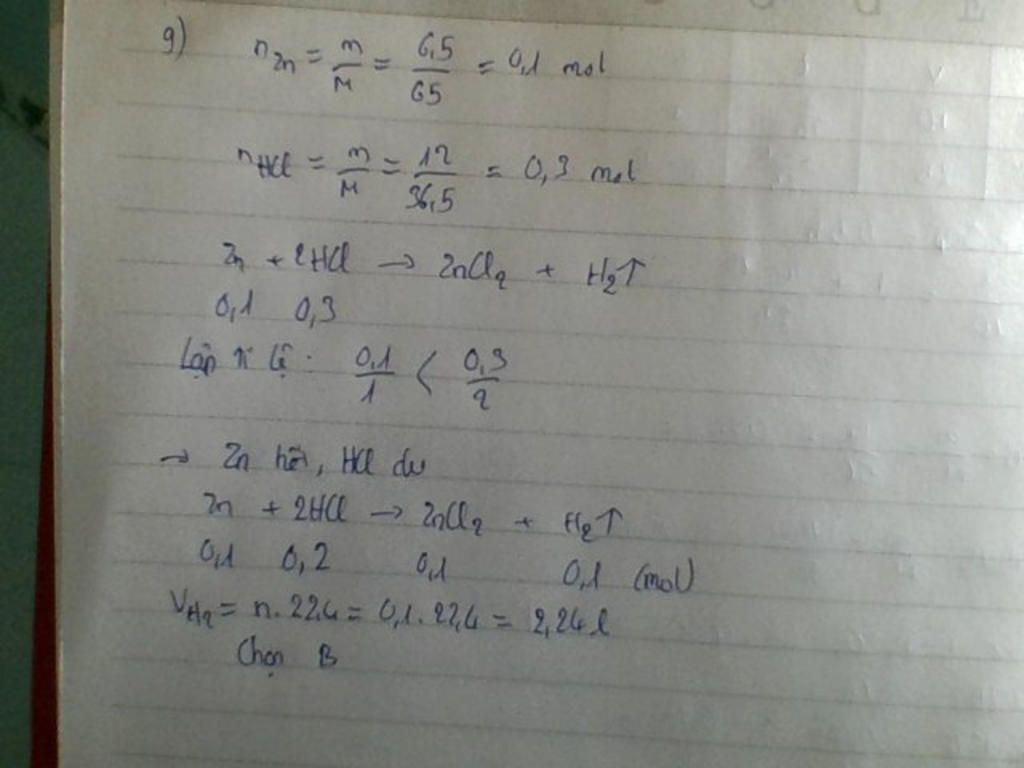 9) nZn = m/M = 6,5/65 = 0,1 mol
nHCl = m/M = 12/36,5 = 0,3 mol
Zn + 2HCl → ZnCl2 + H2↑
0,1 0,3
Lập tỉ lệ : 0,1/1 < 0,3/2
→ Zn hết, HCl dư
Zn + 2HCl → ZnCl2 + H2↑
0,1 0,2 0,1 0,1 (mol)
VH2 = n . 22,4 = 0,1 . 22,4 = 2,24 l
Chọn B